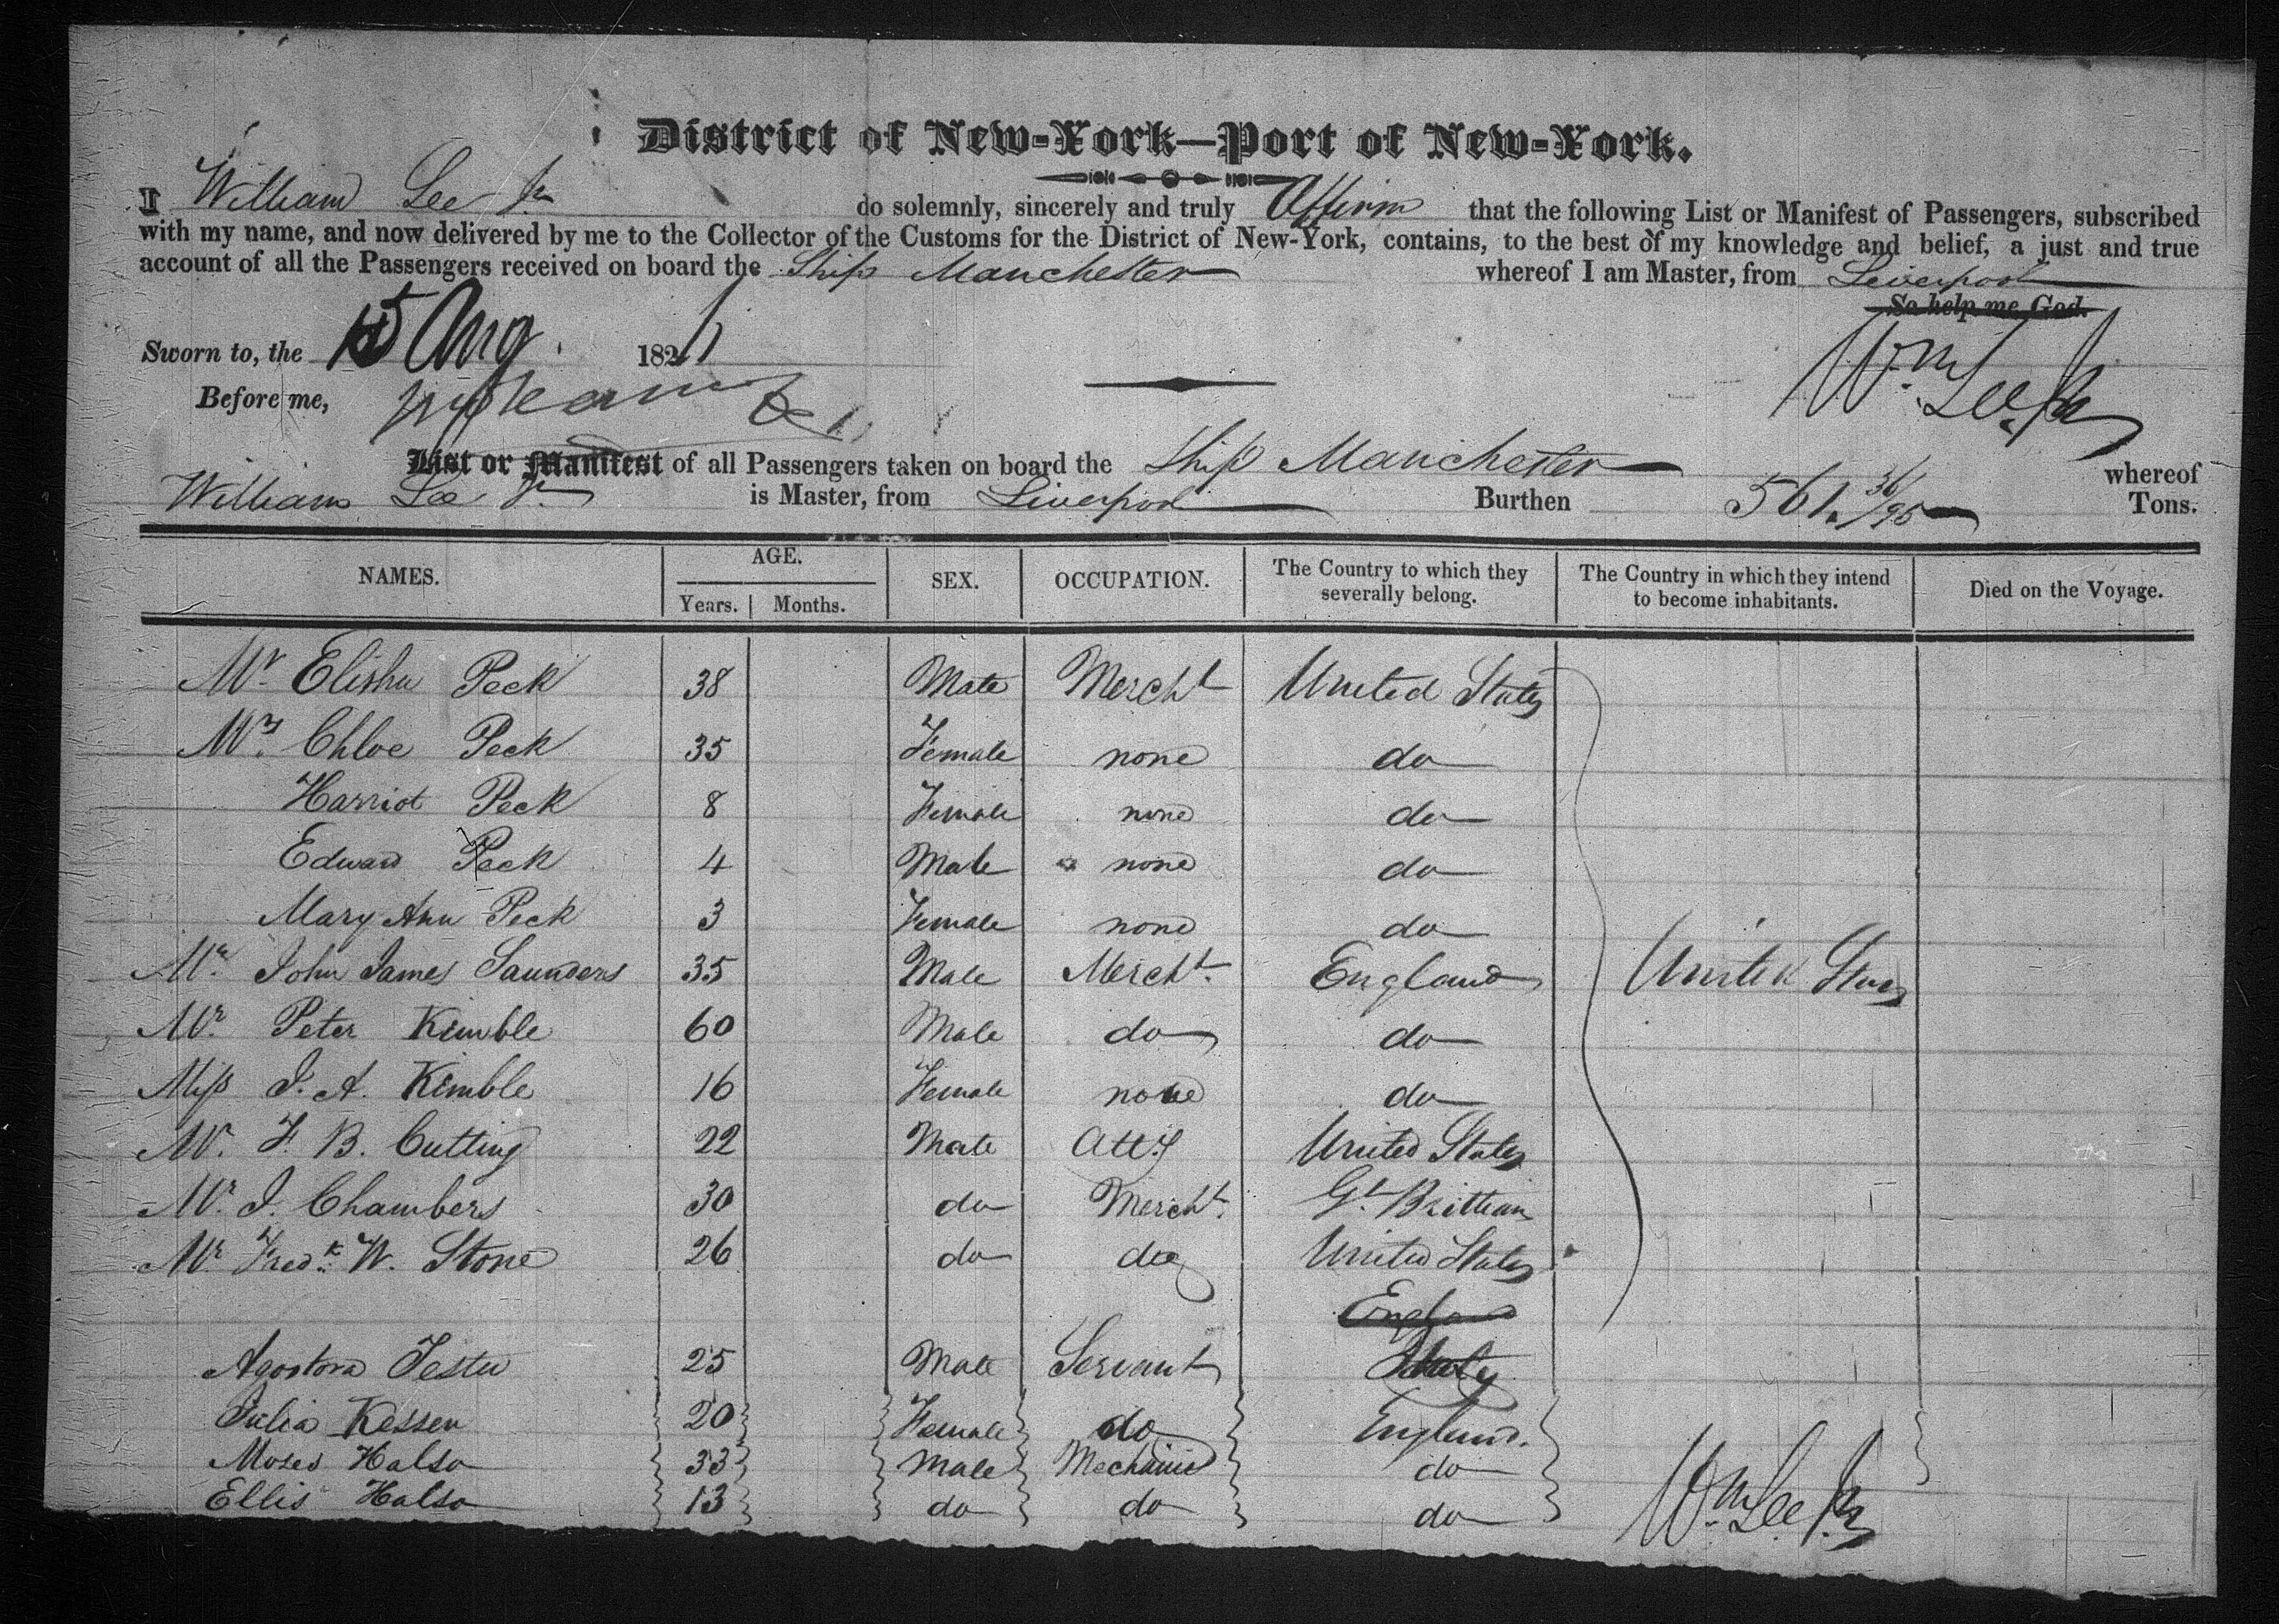 District of New-York—Port of New-York.
I William Lee Jr do solemnly, sincerely and truly Affirm that the following List or Manifest of Passengers, subscribed
with my name, and now delivered by me to the Collector of the Customs for the District of New-York, contains, to the best of my knowledge and belief, a just and true
account of all the Passengers received on board the Ship Manchester whereof I am Master, from Liverpool
So help me God.
Sworn to, the 15 Aug. 182
Wm Lee Jr
Before me,
List or Manifest of all Passengers taken on board the Ship Manchester whereof
William Lee Jr is Master, from Liverpool Burthen 561. 36/95 Tons.
NAMES. AGE. SEX. OCCUPATION. The Country to which they severally belong. The Country in which they intend to become inhabitants. Died on the Voyage.
Years. Months.
Mr Elisha Peck 38 Male Mercht United States
Mrs Chloe Peck 35 Female none do
Harriot Peck 8 Female none do
Edward Peck 4 Male none do
Mary Ann Peck 3 Female none do
Mr John James Saunders 35 Male Mercht England United States
Mr Peter Kimble 60 Male do do
Miss J. A. Kimble 16 Female none do
Mr. F. B. Cutting 22 Male Atty United States
Mr J. Chambers 30 do Mercht Gt Brittian
Mr Fredk W. Stone 26 do do United States
England
Agostora Testu 25 Male Servant Italy
Julia Kessen 20 Female do England.
Moses Halso 33 Male Mechanic do
Ellis Halso 13 do do do
Wm Lee Jr